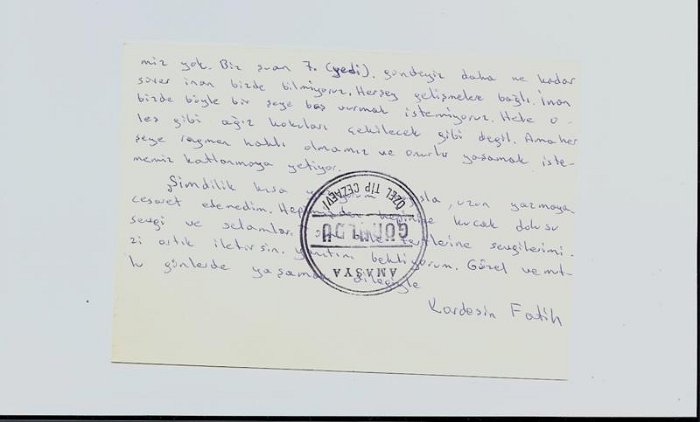 miz yok. Biz şuan 7. (yedi). gündeyiz daha ne kadar
sürer inan bizde bilmiyoruz. Herşey gelişmelere bağlı. İnan
bizde böyle bir şeye baş vurmak istemiyoruz. Hele o
leş gibi ağız kokuları çekilecek gibi değil. Ama her
şeye rağmen haklı olmamız ve onurlu yaşamak iste-
memiz katlanmaya yetiyor.
Şimdilik kısa uzun yazmaya
cesaret edemedim. kucak dolusu
sevgi ve selamlar. sevgilerimi-
zi artık iletirsin. Yanıtını bekliyorum. Güzel ve mut-
lu günlerde yaşamak dileğiyle
Kardeşin Fatih
AMASYA
GÖRÜLDÜ
ÖZEL TİP CEZAEVİ